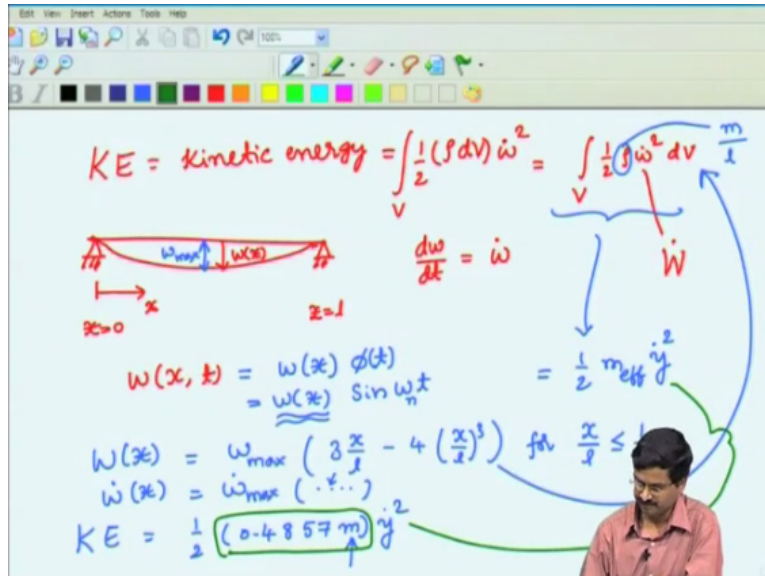 Edit View Insert Actions Tools Help
100%
KE = kinetic energy = ∫_V 1/2 (ρdV) ẇ² = ∫_V 1/2 ρ ẇ² dV
m/l
w_max w(x)
dw/dt = ẇ
Ẇ
x
x=0
x=l
w(x, t) = w(x) φ(t)
= w(x) Sin ω_n t
= 1/2 m_eff ẏ²
w(x) = w_max ( 3 x/l - 4 (x/l)³ ) for x/l ≤
ẇ(x) = ẇ_max ( ... )
KE = 1/2 (0.4857 m) ẏ²